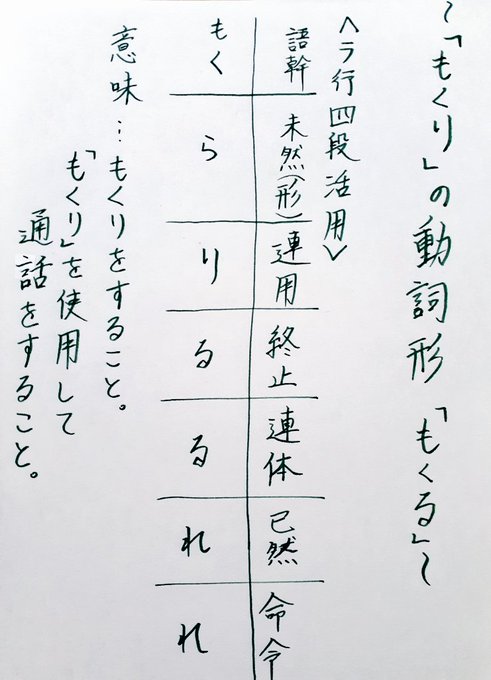 〜「もくり」の動詞形「もくる」〜
＜ラ行四段活用＞
語幹 未然(形) 連用 終止 連体 已然 命令
もく ら り る る れ れ
意味…もくりをすること。
「もくり」を使用して
通話をすること。